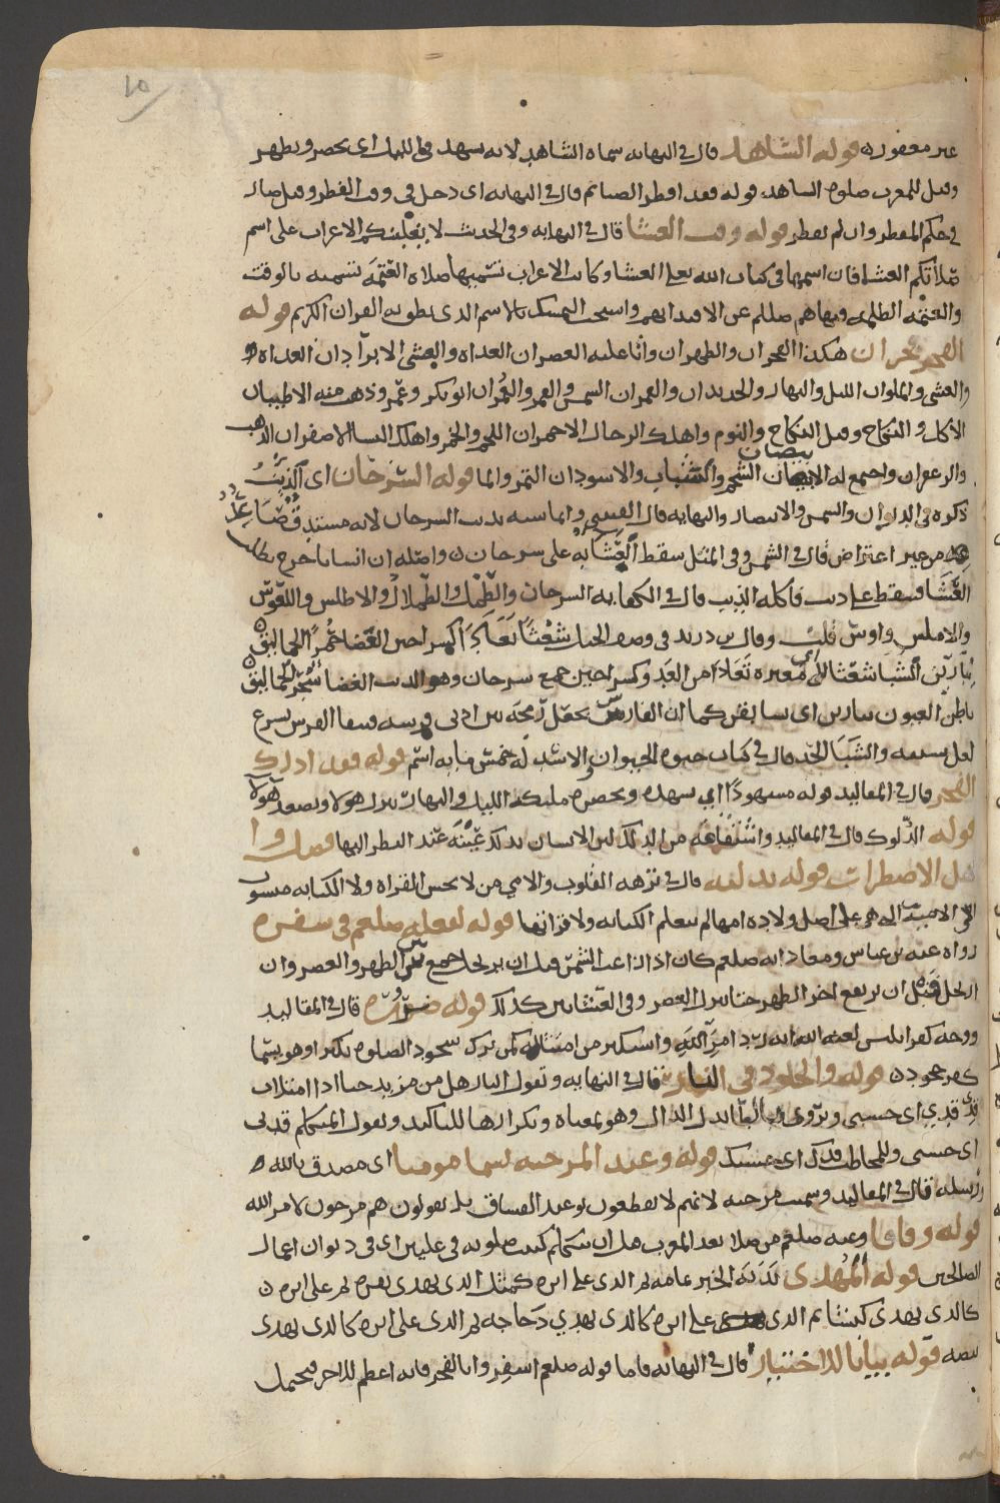 غير معفوره قوله الشاهد قال في النهايه سماه الشاهد لانه يشهد في الليل اي يحضر ويظهر
وقيل للمغرب صلوه الشاهد قوله فقد افطر الصائم قال في النهايه اى دخل في وقت الفطر وقيل صار
في حكم المفطر وان لم يفطر قوله وقت العشا قال في النهايه وفي الحديث لا يغلبنكم الاعراب على اسم
صلاتكم العشا فان اسمها في كتاب الله تعلى العشا وكانت الاعراب تسميها صلاه العتمة تسميه بالوقت
والعتمه الظلمه فنهاهم صللم عن الاقتدا بهم واستحب التمسك بالاسم الذى نطق به القران الكريم قوله
الفجر فجران هكذا الفجران والظهران وانا عليه العصران الغداه والعشى الابرادان الغداه
والعشي والملوان الليل والنهار والجديدان والقمران الشمس والقمر والعُمران ابو بكر وعمر وذهب منه الاطيبان
الاكل والنكاح وقيل النكاح والنوم واهلك الرجال الاحمران اللحم والخمر واهلك النسا الاصفران الذهب
والزعفران واجتمع له الابيضان الشحم والشباب والاسودان التمر والما قوله السرحان اى الذيب
ذكره في الديوان والشمس والانتصار والنهايه قال القتيبي وانما شبه بذنب السرحان لانه مستدق صاعد
من غير اعتراض قال في الشمس وفي المثل سقط العشا به على سرحان واصله ان انسانا خرج يطلب
العَشَا فسقط على ذيب فاكله الذيب قال في الكفايه السرحان والطمل والطملال والاطلس واللعوس
والاملس واوس وقال بن دريد في وصف الخيل شعثا تعادى كسراحين الغضا
شعثا اى مغبره تعادا من العدو وكسراحين جمع سرحان وهو الذيب الغضا شجر
باطن العيون يبارين اى يسابقن كما ان الفارس يجعل رمحه بين اذنى فرسه فيسعا الفرس يسرع
والشبا الحد قال في كتاب حيوه الحيوان والاسد له خمس مايه اسم قوله فقد ادرك
الفجر قال في المقاليد قوله مشهودا اي يشهده ويحضره مليكه الليل والنهار ينزل هولا ويصعد هولا
قوله الدلوك قال في المقاليد واشتقاقه من الدلك لان الانسان يدلك عينه عند النظر اليها
اهل الاضطرار قوله قال في نزهه القلوب والامي من لا يحسن القراه ولا الكتابه منسوب
الى على اصل ولاده امها لم يتعلم الكتابه ولا قرا تها قوله لفعله صلعم في سفره
رواه عنه بن عباس ومعاذ انه صلعم كان اذا زاغت الشمس قبل ان يرتحل جمع بين الظهر والعصر وان
ارتحل قبل ان تزيغ اخر الظهر حتا ينزل العصر وفي العشاين كذلك قوله قال في المقاليد
ووجه كفر ابليس لعنه الله انه رد امر الله واستكبر من امتثاله كمن ترك سجود الصلوه تكبرا وهو يسما
كفر جحود قوله والخلود في النار قال في النهايه وتقول النار هل من مزيد حتا اذا امتلات
قدي قدي اى حسبى وتروى بالطا بدل الدال وهو بمعناه وتكرارها للتاكيد ويقول المتكلم قدنى
اى حسبى وللمخاطب قدك اى حسبك قوله وعند المرجئه يسما مومنا اى مصدق بالله
ورسله قال في المقاليد وسميت مرجئه لانهم لا يقطعون بوعيد الفساق بل يقولون هم مرجون لامر الله
قوله وفاقا وعنه صلعم من صلا بعد المغرب قبل ان يتكلم كتبت صلوته في عليين اى في ديوان اعمال
الصالحين قوله المهدى الخبر عامه ثم الذى على اثره كمثل الذى يهدى بقره ثم على اثره
كالذى يهدى كبشا ثم الذى على اثره كالذى يهدي دجاجه ثم الذى على اثره كالذى يهدى
بيضه قوله بيانا للاختيار قال في النهايه فاما قوله صلعم اسفروا بالفجر فانه اعظم للاجر فيحتمل